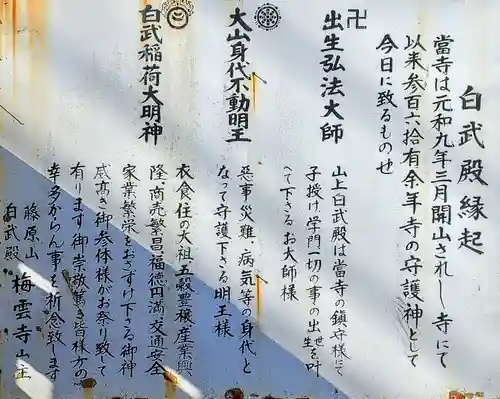 白武殿縁起
當寺は元和九年三月開山されし寺にて
以来参百六拾有余年寺の守護神として
今日に致るものせ
卍
出生弘法大師
山上白武殿は當寺の鎮守様にて
子授け学門一切の事の出世を叶
へて下さるお大師様
大山身代不動明王
悪事災難、病気等の身代と
なって守護下さる明王様
白武稲荷大明神
衣食住の大祖五穀豊穣産業興
隆、商売繁昌福徳円満交通安全
家業繁栄をおさずけ下さる御神
感高き御参体様がお祭り致して
有ります御崇敬篤き皆様方の
幸多からん事を祈念致します
藤原山
白武殿 梅雲寺山主